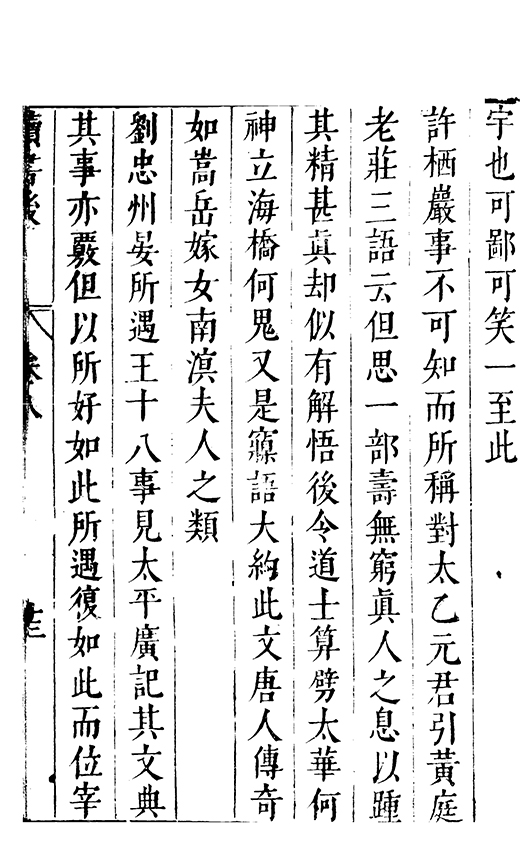 宇也可鄙可笑一至此
許栖巖事不可知而所稱對太乙元君引黃庭
老莊三語云但思一部壽無窮眞人之息以踵
其精甚眞却似有解悟後令道士算劈太華何
神立海橋何鬼又是寱語大約此文唐人傳奇
如嵩岳嫁女南溟夫人之類
劉忠州晏所遇王十八事見太平廣記其文典
其事亦覈但以所好如此所遇復如此而位宰
讀書後
卷八
十三